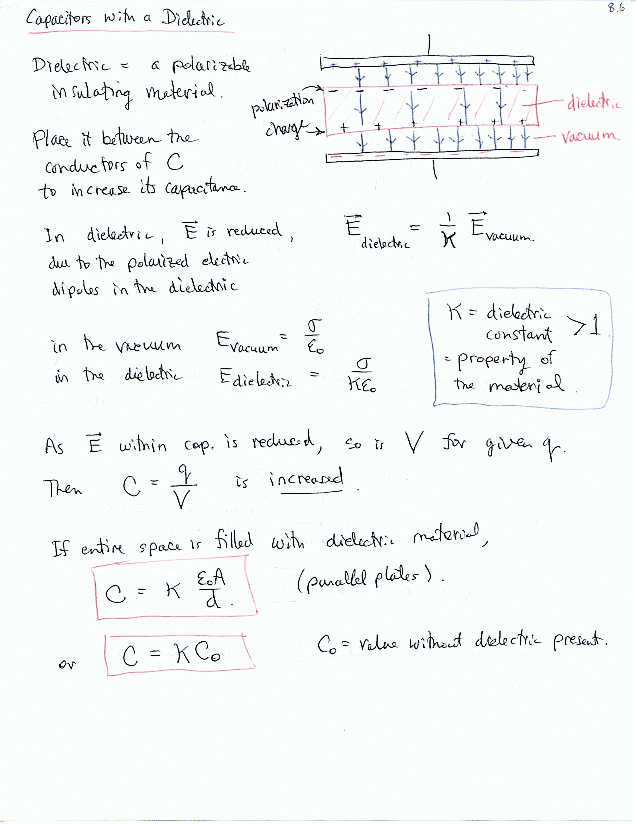 8.6
Capacitors with a Dielectric
Dielectric = a polarizable
insulating material.
Place it between the
conductors of C
to increase its capacitance.
polarization
charge
+ + + + + + + +
- - - - - -
+ + + + + +
- - - - - - - -
dielectric
vacuum.
In dielectric, E⃗ is reduced,
due to the polarized electric
dipoles in the dielectric
E⃗dielectric = 1/K E⃗vacuum.
in the vacuum Evacuum = σ/ε₀
in the dielectric Edielectric = σ/Kε₀
K = dielectric
constant > 1
= property of
the material.
As E⃗ within cap. is reduced, so is V for given q.
Then C = q/V is increased.
If entire space is filled with dielectric material,
C = K ε₀A/d. (parallel plates).
or C = K C₀ C₀ = value without dielectric present.